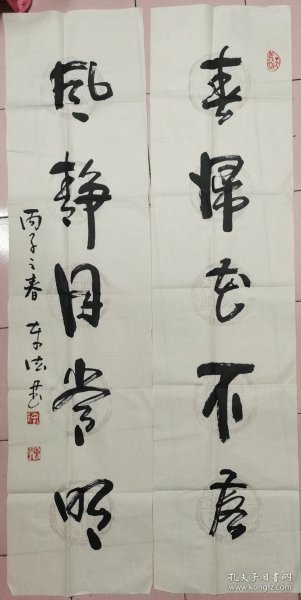 春归花不落
风静月常明
丙子之春
孔夫子旧书网